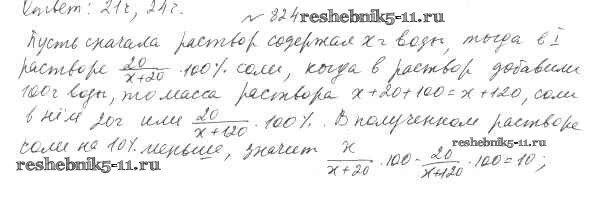 Ответ: 21г, 24г.
№ 824 reshebnik5-11.ru
Пусть сначала раствор содержал x г воды, тогда в I
растворе 20/(x+20) · 100% соли, когда в раствор добавили
100г воды, то масса раствора x+20+100=x+120, соли
в нём 20г или 20/(x+120) · 100%. В полученном растворе
reshebnik5-11.ru
соли на 10% меньше, значит x/(x+20) · 100 - 20/(x+120) · 100 = 10;
reshebnik5-11.ru